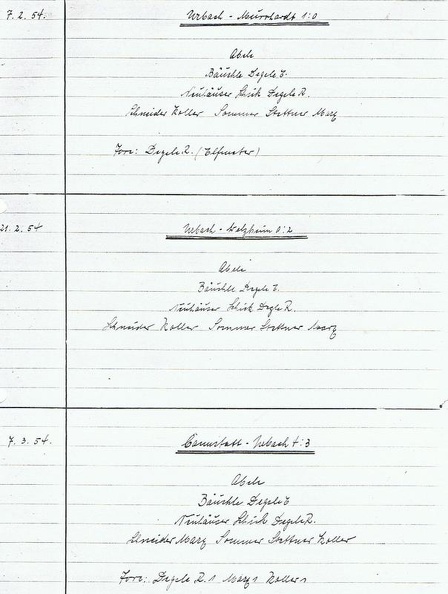 7. 2. 54. Urbach - Murrhardt 1:0
Abele
Bäuchle Degele E.
Neuhäuser Schick Degele R.
Schneider Koller Sommer Stettner Marz
Tore: Degele R. (Elfmeter)
21. 2. 54 Urbach - Welzheim 0:2
Abele
Bäuchle Degele E.
Neuhäuser Schick Degle R.
Schneider Koller Sommer Stettner Marz
7. 3. 54. Cannstatt - Urbach 4:3
Abele
Bäuchle Degele E
Neuhäuser Schick Degele R.
Schneider Marz Sommer Stettner Koller
Tore: Degele R. 1 Marz 1 Koller 1